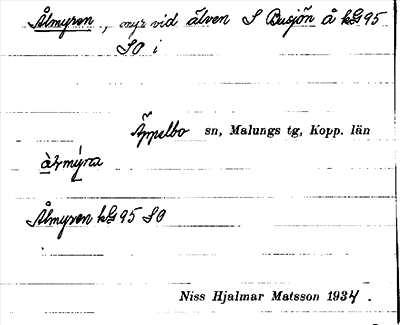 Ålmyren, myr vid älven S Busjön å kG 95
SO i
Äppelbo sn, Malungs tg, Kopp. län
àlmýra
Ålmyren kG 95 SO
Niss Hjalmar Matsson 1934.